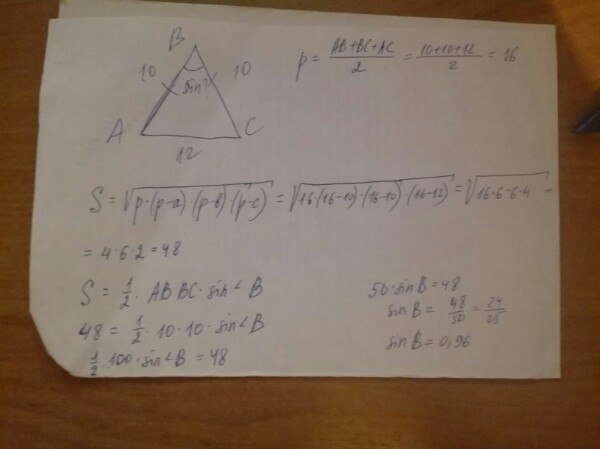 B
10 10
sin?
A C
12
p = AB+BC+AC / 2 = 10+10+12 / 2 = 16
S = √p·(p-a)·(p-b)·(p-c) = √16·(16-10)·(16-10)·(16-12) = √16·6·6·4 =
= 4·6·2 = 48
S = 1/2 · AB·BC·sin∠B
48 = 1/2 · 10·10·sin∠B
1/2·100·sin∠B = 48
50·sinB = 48
sinB = 48/50 = 24/25
sinB = 0,96